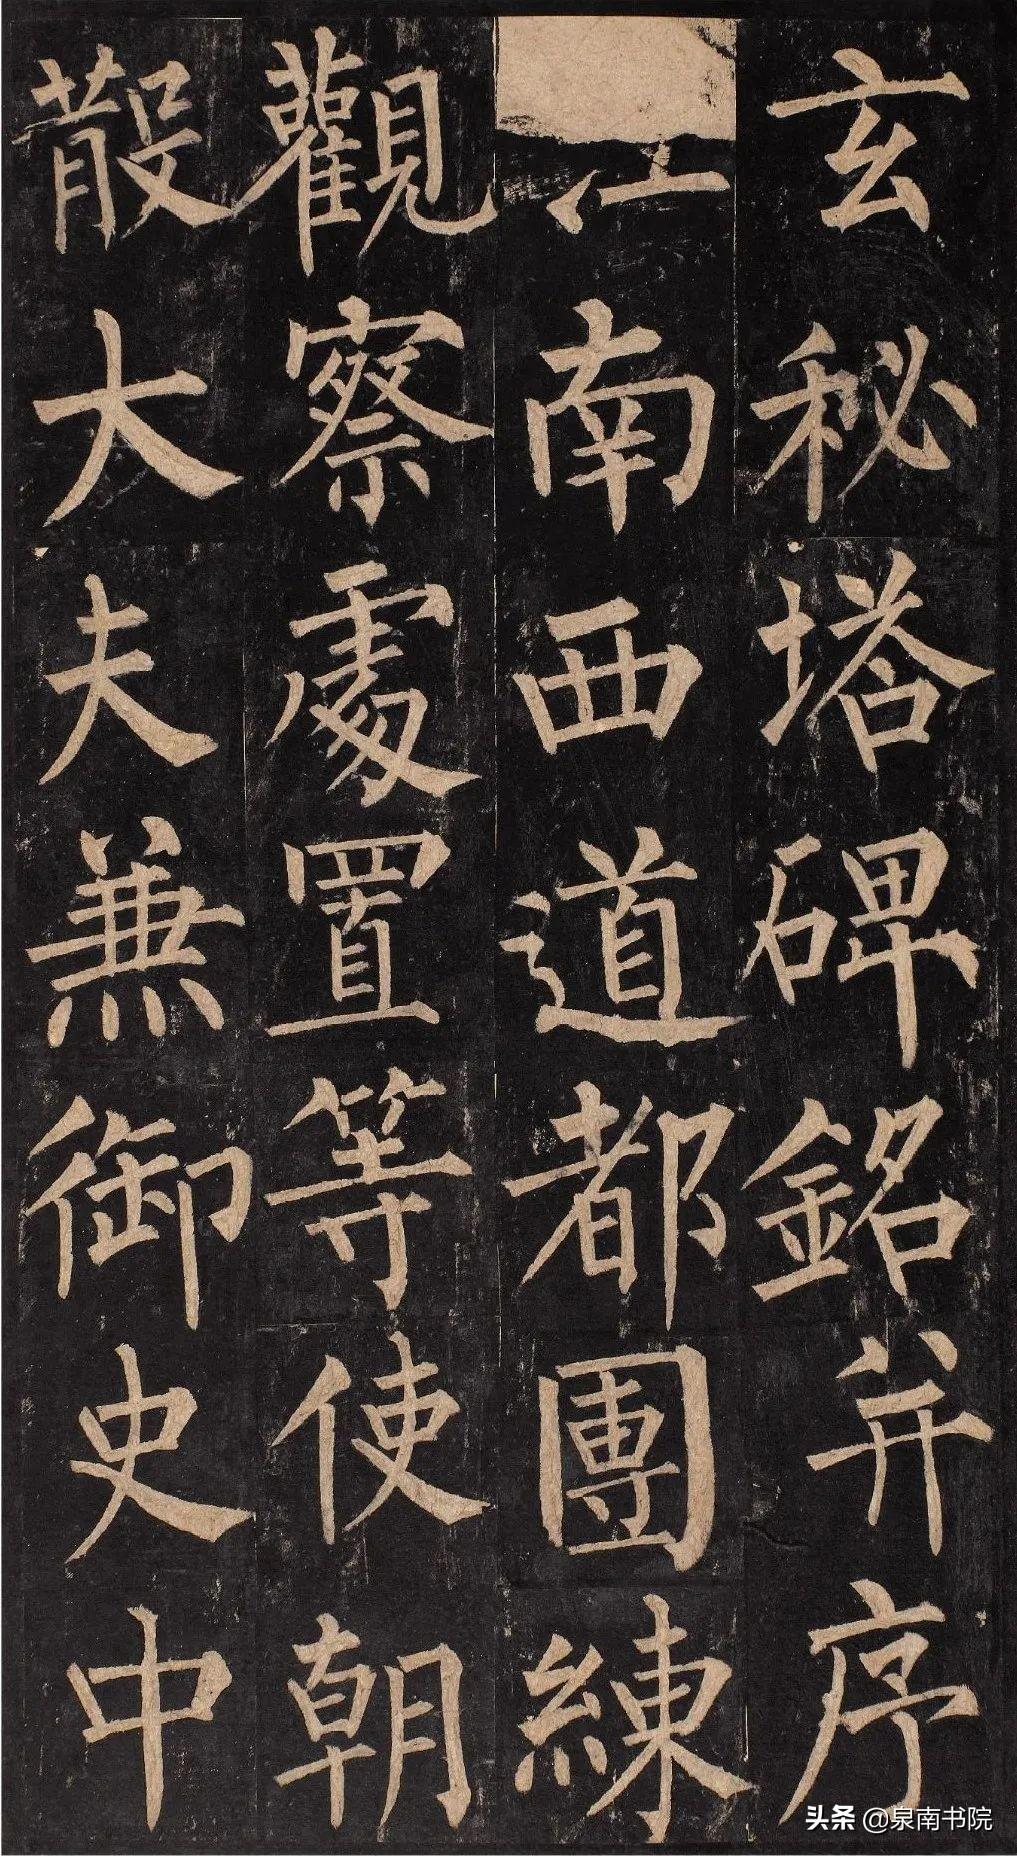 玄秘塔碑銘并序
江南西道都團練
觀察處置等使朝
散大夫兼御史中
头条 @泉南书院